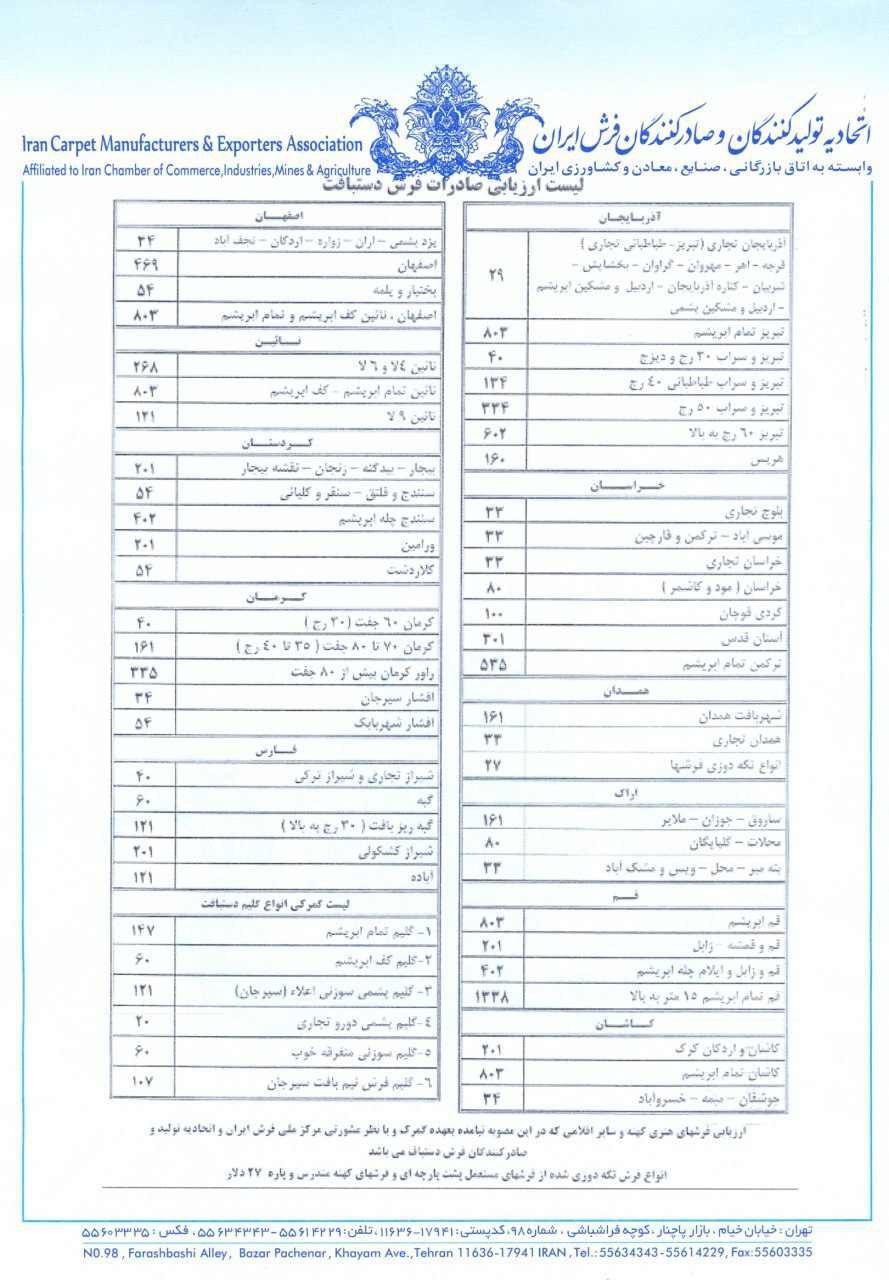 اتحادیه تولیدکنندگان و صادرکنندگان فرش ایران
وابسته به اتاق بازرگانی، صنایع، معادن و کشاورزی ایران
Iran Carpet Manufacturers & Exporters Association
Affiliated to Iran Chamber of Commerce,Industries,Mines & Agriculture
لیست ارزیابی صادرات فرش دستبافت
آذربایجان
آذربایجان تجاری (تبریز- طباطبائی تجاری)
قرجه - اهر - مهروان - گراوان - بخشایش -
شربیان - کناره آذربایجان - اردبیل و مشکین ابریشم
- اردبیل و مشکین پشمی
۲۹
تبریز تمام ابریشم ۸۰۳
تبریز و سراب ۳۰ رج و دیزج ۴۰
تبریز و سراب طباطبائی ۴۰ رج ۱۳۴
تبریز و سراب ۵۰ رج ۳۳۴
تبریز ۶۰ رج به بالا ۶۰۲
هریس ۱۶۰
خراسان
بلوچ تجاری ۳۳
موسی آباد - ترکمن و قارچین ۳۳
خراسان تجاری ۳۳
خراسان (مود و کاشمر) ۸۰
کردی قوچان ۱۰۰
آستان قدس ۳۰۱
ترکمن تمام ابریشم ۵۳۵
همدان
شهربافت همدان ۱۶۱
همدان تجاری ۳۳
انواع تکه دوزی فرشها ۲۷
اراک
ساروق - جوزان - ملایر ۱۶۱
محلات - گلپایگان ۸۰
بته میر - محل - ویس و مشک آباد ۳۳
قم
قم ابریشم ۸۰۳
قم و قمشه - زابل ۲۰۱
قم و زابل و ایلام چله ابریشم ۴۰۲
قم تمام ابریشم ۱۵ متر به بالا ۱۳۳۸
کاشان
کاشان و اردکان کرک ۲۰۱
کاشان تمام ابریشم ۸۰۳
جوشقان - میمه - خسروآباد ۳۴
اصفهان
یزد پشمی - اران - زواره - اردکان - نجف آباد ۳۴
اصفهان ۴۶۹
بختیار و یلمه ۵۴
اصفهان، نائین کف ابریشم و تمام ابریشم ۸۰۳
نائین
نائین ۴لا و ۶ لا ۲۶۸
نائین تمام ابریشم - کف ابریشم ۸۰۳
نائین ۹ لا ۱۲۱
کردستان
بیجار - بیدگنه - زنجان - نقشه بیجار ۲۰۱
سنندج و قلتق - سنقر و کلیائی ۵۴
سنندج چله ابریشم ۴۰۲
ورامین ۲۰۱
کلاردشت ۵۴
کرمان
کرمان ۶۰ جفت (۳۰ رج) ۴۰
کرمان ۷۰ تا ۸۰ جفت (۳۵ تا ۴۰ رج) ۱۶۱
راور کرمان بیش از ۸۰ جفت ۳۳۵
افشار سیرجان ۳۴
افشار شهربابک ۵۴
فارس
شیراز تجاری و شیراز ترکی ۴۰
گبه ۶۰
گبه ریز بافت (۳۰ رج به بالا) ۱۲۱
شیراز کشکولی ۲۰۱
آباده ۱۲۱
لیست گمرکی انواع گلیم دستبافت
۱- گلیم تمام ابریشم ۱۴۷
۲- گلیم کف ابریشم ۶۰
۳- گلیم پشمی سوزنی اعلاء (سیرجان) ۱۲۱
۴- گلیم پشمی دورو تجاری ۲۰
۵- گلیم سوزنی متفرقه خوب ۶۰
۶- گلیم فرش نیم بافت سیرجان ۱۰۷
ارزیابی فرشهای هنری کهنه و سایر اقلامی که در این مصوبه نیامده بعهده گمرک و با نظر مشورتی مرکز ملی فرش ایران و اتحادیه تولید و
صادرکنندگان فرش دستباف می باشد
انواع فرش تکه دوزی شده از فرشهای مستعمل پشت پارچه ای و فرشهای کهنه مندرس و پاره ۲۷ دلار
تهران: خیابان خیام، بازار پاچنار، کوچه فراشباشی، شماره ۹۸، کدپستی: ۱۷۹۴۱-۱۱۶۳۶، تلفن: ۵۵۶۱۴۲۲۹-۵۵۶۳۴۳۴۳، فکس: ۵۵۶۰۳۳۳۵
N0.98 , Farashbashi Alley, Bazar Pachenar, Khayam Ave.,Tehran 11636-17941 IRAN ,Tel.: 55634343-55614229, Fax:55603335